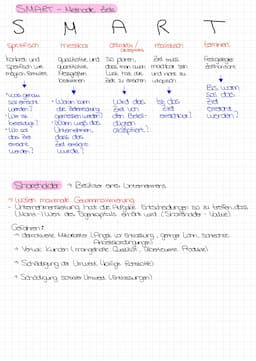 SMART - Methode Ziele
S M A R T
spezifisch messbar attraktiv / akzeptiert realistisch terminiert
Konkret und spezifisch wie möglich formuliert
Qualitative und quantitative Messgrößen bestimmen
So planen, dass man auch Lust hat, die Ziele zu erreichen
Ziel muss machbar sein und nicht zu utopisch
Festgelegter Zeitpunkt
• Was genau soll erreicht werden?
• Wer ist beteiligt?
• Wo soll das Ziel erreicht werden?
• Woran kann die Zielerreichung gemessen werden?
• Wann weiß das Unternehmen, dass das Ziel erreicht wurde?
Wird das Ziel von den Beteiligten akzeptiert?
Ist das Ziel erreichbar?
Bis wann soll das Ziel erreicht werden?
Shareholder → Besitzer eines Unternehmens
→ Wollen maximale Gewinnmaximierung
- Unternehmensleitung hat die Aufgabe Entscheidungen so zu treffen, dass
(Markt-) Wert des Eigenkapitals erhöht wird (Shareholder - Value)
Gefahren:
→ demotivierte Mitarbeiter (Angst vor Entlassung, geringer Lohn, schlechte
Arbeitsbedingungen)
→ Verlust Kunden (mangelnde Qualität, überteuerte Produkte)
→ Schädigung der Umwelt (billige Rohstoffe)
→ Schädigung sozialer Umwelt (Entlassungen)